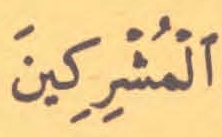 اَلْمُشْرِكِينَ